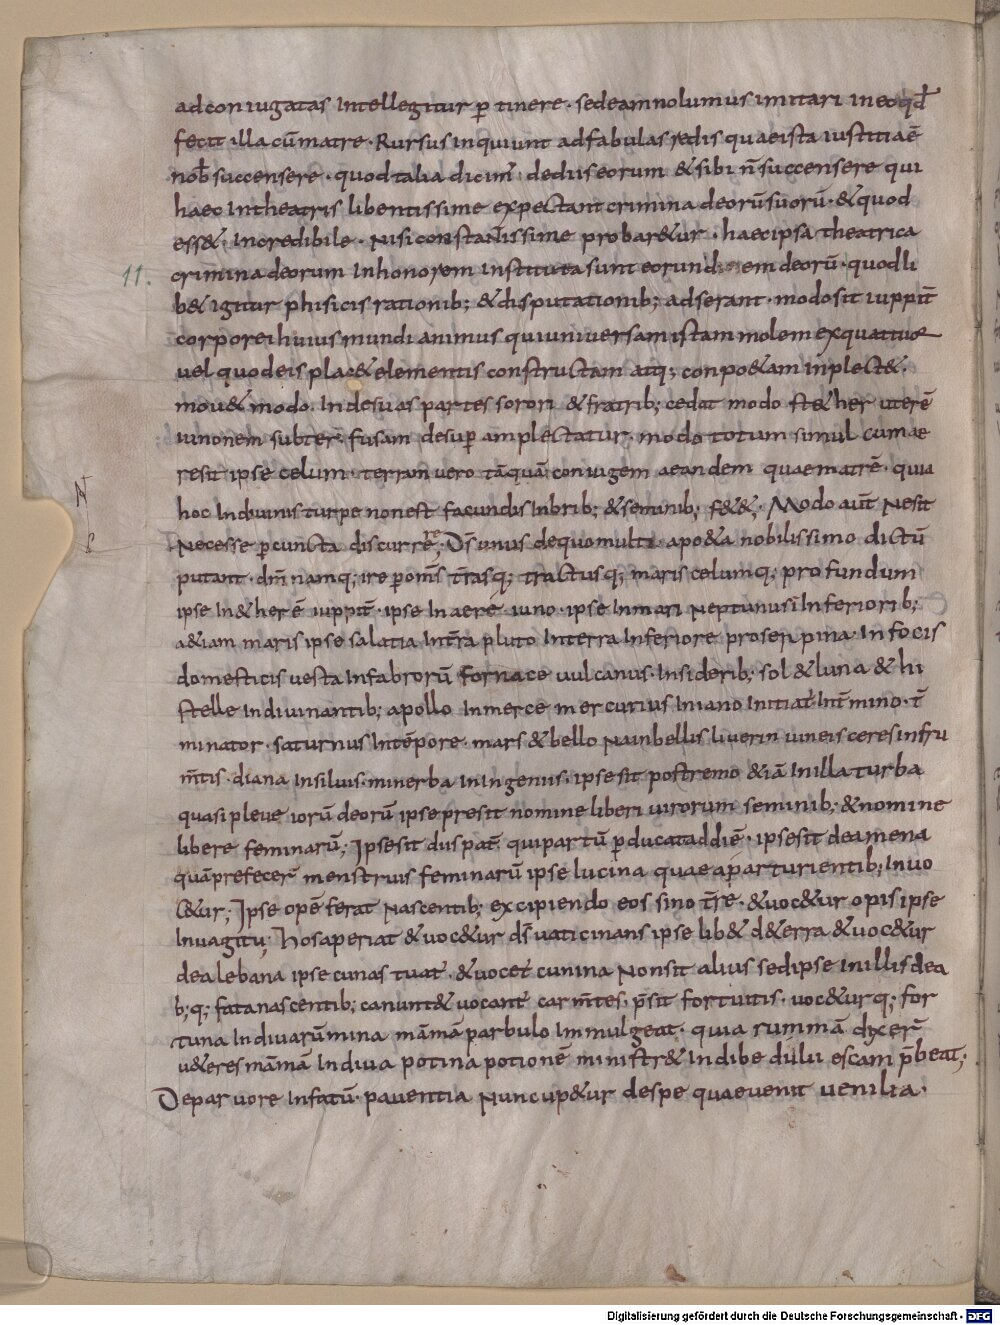 adconiugatas Intellegitur p̄ tinere · sedeamnolumus imitari ineo qđ
fecit · illa cū matre · Rursus inquiunt adfabulas redis quae ista iustitia ē
nob̄ succensere · quodtalia dicim̄ dediis eorum & sibi n̄ succensere qui
haec Intheatris libentissime expectant crimina deorū suorū · & quod
ess& Incredibile · nisi constantissime probar&ur · haecipsa theatrica
11. crimina deorum Inhonorem Instituta sunt eorund em deorū · quodli
b& igitur phisicis rationib; & disputationib; adserant · modosit iuppit̄
corporei huius mundi animus qui universam istam molem exquattuor
vel quodeis plac& elementis constructam atq; conpo&am inplect& ·
mou& modo Indesuas partes sorori & fratrib; cedat modo sit &her uterē
iunonem subter fusam desup̄ amplectatur · modo totum simul cum ae
resit ipse celum · terram vero tāquā coniugem aeandem quae matrē · quia
hoc Indivinis turpe nonest facundis Inbrib; & seminib; f&& · Modo aut̄ nesit
Necesse p̄cuncta discurrere · D̄s unus dequomulti apo&a nobilissimo dictū
putant · dm̄ namq; ire p̄ om̄s t̄rasq; tractusq; maris celumq; profundum
ipse In&her ē iuppit̄ · ipse Inaere iuno · ipse Inmari Neptunus īnferiorib;
a&iam maris ipse salatia Int̄ra pluto Interra Inferiore proserpina · In focis
domesticis vesta Infabrorū fornace vulcanus · Insiderib; sol & luna & hi
stelle Indivinantib; apollo Inmerce mercurius Iniano Initiat̄ Int̄mino · t̄
minator · saturnus Intēpore · mars & bello nainbellis liverin vineis ceres infru
m̄tis · diana Insilvis · minerba Iningenus · ipsesit postremo &iā Inilla turba
quasi pleve iorū deorū ipse presit nomine liberi virorum seminib; & nomine
libere feminarū; Ipsesit dus pat̄ qui partū p̄ducataddiē · ipsesit deamena
quāprefecer̄ menstruis feminarū ipse lucina quae ap̄arturientib; Invo
c&ur; Ipse opē ferat Nascentib; excipiendo eos sino t̄re · &voc&ur opis ipse
Invagitu; hosaperiat & voc&ur d̄s vaticinans ipse lib& d&erra & voc&ur
dea lebana ipse cunas tuat̄ · & vocet̄ cunina Nonsit alius sedipse Inillis dea
b;q; fata nascentib; canunt& vocant̄ carm̄tes · p̄sit fortuitis · voc&urq; for
tuna Indivarūmina māmā parbulo Immulgeat · quia rummā dixer̄
v&eres māmā Indiva potina potionē ministr& Indibe diilii escam p̄beat;
Deparvore Infatū · paventia Nuncup&ur despe quaevenit venilia ·
Digitalisierung gefördert durch die Deutsche Forschungsgemeinschaft - DFG